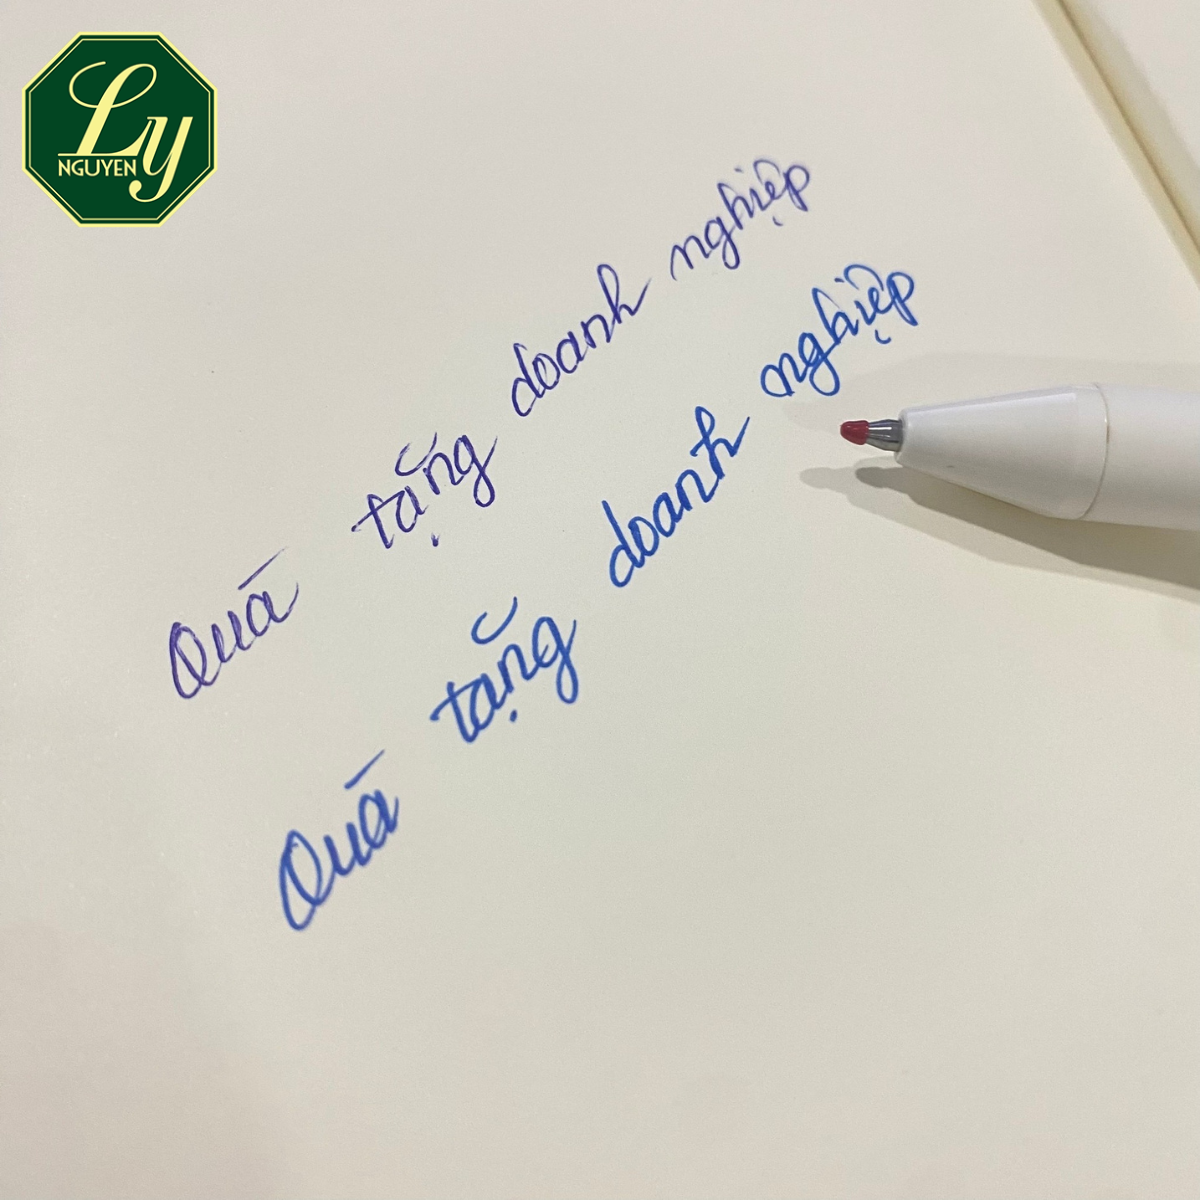 Ly
NGUYEN
Quà tặng doanh nghiệp
Quà tặng doanh nghiệp